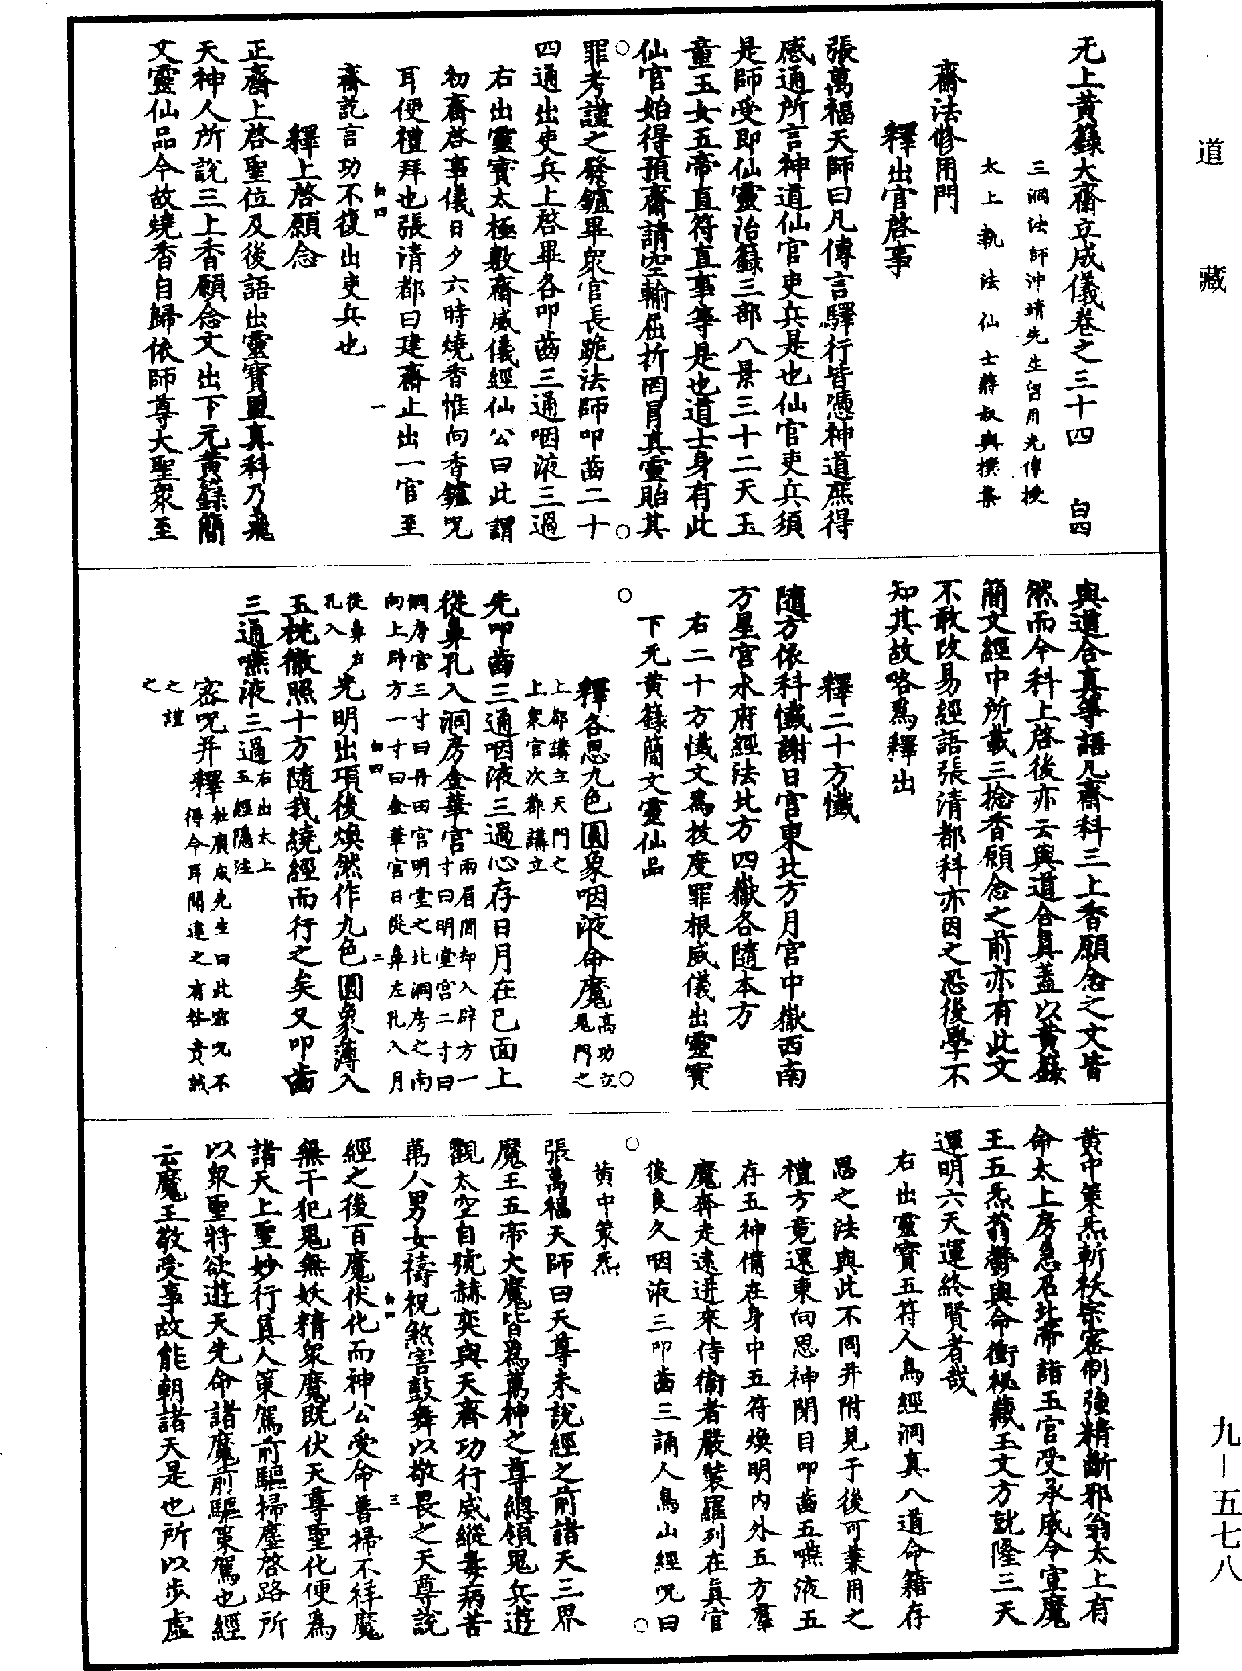 道藏
九—五七八
无上黃籙大齋立成儀卷之三十四　白四
三洞法師沖靖先生留用光傳授
太上執法仙士蔣叔輿撰集
齋法修用門
釋出官啓事
張萬福天師曰凡傳言驛行皆憑神道庶得
感通所言神道仙官吏兵是也仙官吏兵須
是師受即仙靈治籙三部八景三十二天玉
童玉女五帝直符直事等是也道士身有此
仙官始得預齋請空輸屈折罔冒真靈貽其
罪考謹之發鑪畢衆官長跪法師叩齒二十
四通出吏兵上啓畢各叩齒三通咽液三過
右出靈寶太極敷齋威儀經仙公曰此謂
初齋啓事儀日夕六時燒香惟向香鑪呪
耳便禮拜也張清都曰建齋止出一官至
白四　一
齋説言功不復出吏兵也
釋上啓願念
正齋上啓聖位及後語出靈寶盟真科乃飛
天神人所説三上香願念文出下元黃籙簡
文靈仙品今故燒香自歸依師尊大聖衆至
與道合真等語凡齋科三上香願念之文皆
然而今科上啓後亦云與道合真蓋以黃籙
簡文經中所載三捻香願念之前亦有此文
不敢改易經語張清都科亦因之恐後學不
知其故略爲釋出
釋二十方懺
隨方依科懺謝日宮東北方月宮中嶽西南
方星宮水府經法北方四嶽各隨本方
右二十方懺文爲拔度罪根威儀出靈寶
下元黃籙簡文靈仙品
釋各思九色圓象咽液命魔高功立鬼門之
上都講立天門之
上衆官次都講立
先叩齒三通咽液三過心存日月在己面上
從鼻孔入洞房金華宮兩眉間却入辟方一
寸曰明堂宮二寸曰
洞房宮三寸曰丹田宮明堂之北洞房之南
向上辟方一寸曰金華宮日從鼻左孔入月
從鼻右
孔入　光明出項後煥然作九色圓象薄入
白四　二
玉枕徹照十方隨我繞經而行之矣又叩齒
三通嚥液三過右出太上
玉經隱注
密呪并釋杜廣成先生曰此密呪不
得令耳聞違之有咎責誡
之謹
之
黃中策炁斬妖宗寒制強精斷邪翁太上有
命太上房急召北帝諸玉官受承威令宣魔
王五炁翁欝與命衝祕藏玉文方訖隆三天
運明六天運終賢者哉
右出靈寶五符人鳥經洞真八道命籍存
思之法與此不同并附見于後可兼用之
禮方竟還東向思神閉目叩齒五嚥液五
存五神備在身中五符煥明內外五方羣
魔奔走遠迸來侍衞者嚴裝羅列在真官
後良久咽液三叩齒三誦人鳥山經呪曰
黃中策炁
張萬福天師曰天尊未説經之前諸天三界
魔王五帝大魔皆爲萬神之尊總領鬼兵遊
觀太空自號赫奕與天齋功行威縱毒病苦
萬人男女禱祝煞害鼓舞以敬畏之天尊説
白四　三
經之後百魔伏化而神公受命普掃不祥魔
無干犯鬼無妖精衆魔既伏天尊聖化便爲
諸天上聖妙行真人策駕前驅掃塵啓路所
以衆聖將欲遊天先命諸魔前驅策駕也經
云魔王敬受事故能朝諸天是也所以步虛